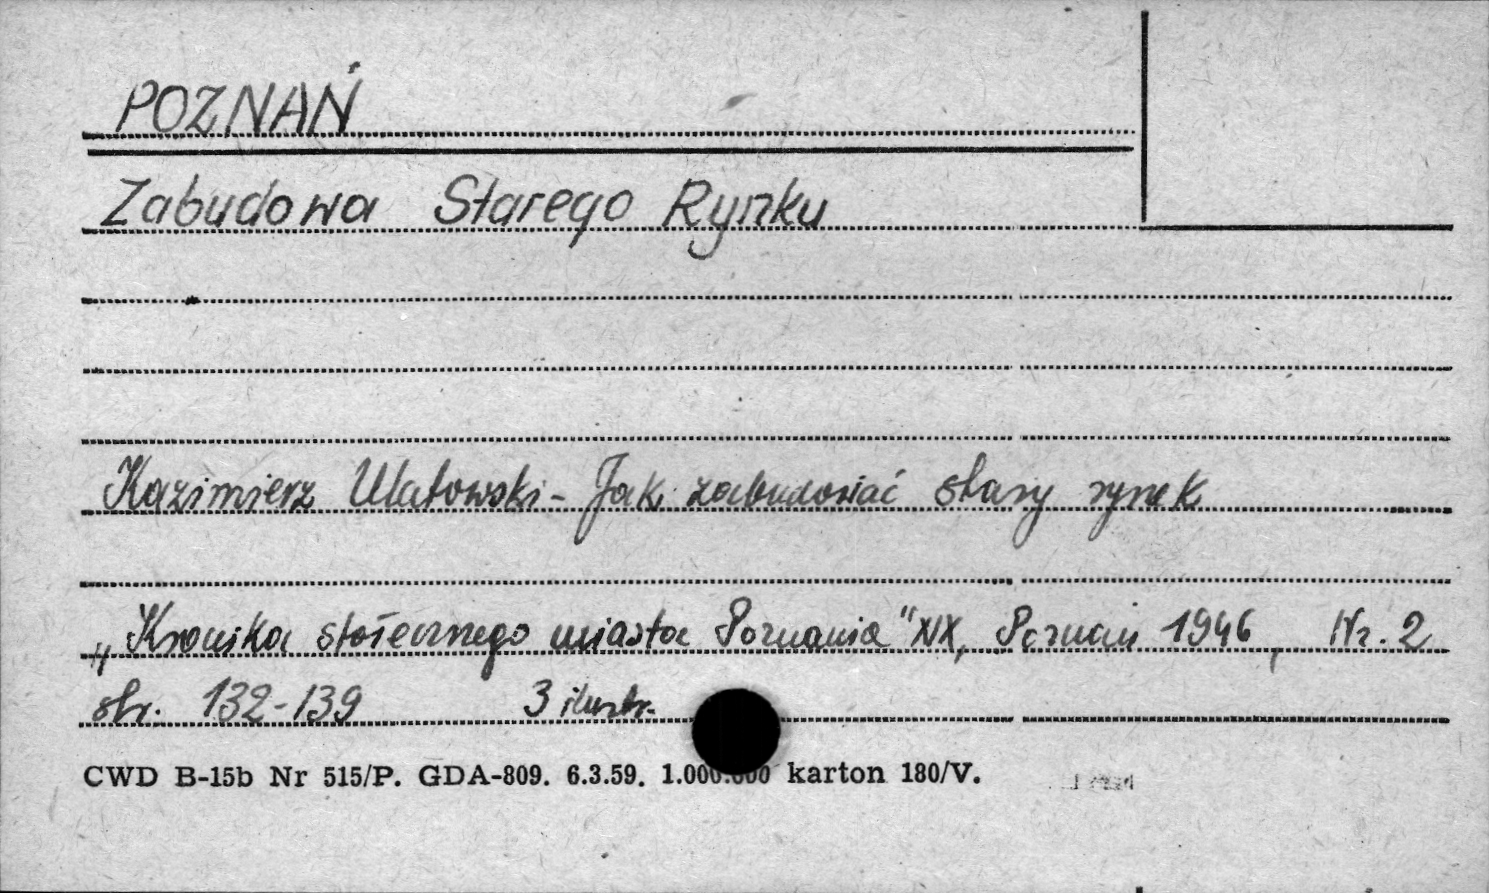 POZNAŃ
Zabudowa Starego Rynku
Kazimierz Ulatowski - Jak zabudować stary rynek
„Kronika stołecznego miasta Poznania" XIX, Poznań 1946, Nr. 2
str. 132-139 3 ilustr.
CWD B-15b Nr 515/P. GDA-809. 6.3.59. 1.000.000 karton 180/V.